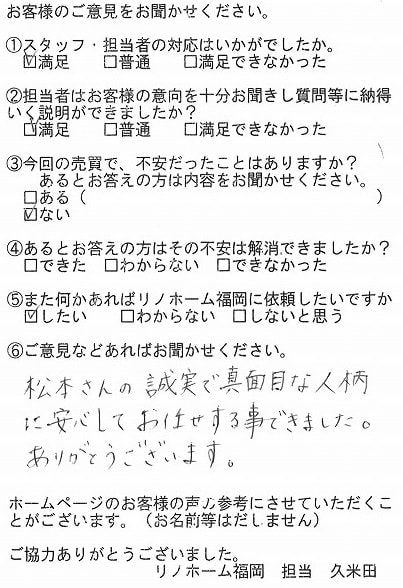 お客様のご意見をお聞かせください。
①スタッフ・担当者の対応はいかがでしたか。
☑満足　□普通　□満足できなかった
②担当者はお客様の意向を十分お聞きし質問等に納得
いく説明ができましたか？
☑満足　□普通　□満足できなかった
③今回の売買で、不安だったことはありますか？
あるとお答えの方は内容をお聞かせください。
□ある（　　　　　　　　　　　　　　　）
☑ない
④あるとお答えの方はその不安は解消できましたか？
□できた　□わからない　□できなかった
⑤また何かあればリノホーム福岡に依頼したいですか
☑したい　□わからない　□しないと思う
⑥ご意見などあればお聞かせください。
松本さんの誠実で真面目な人柄
に安心してお任せする事できました。
ありがとうございます。
ホームページのお客様の声の参考にさせていただくこ
とがございます。（お名前等はだしません）
ご協力ありがとうございました。
リノホーム福岡　担当　久米田